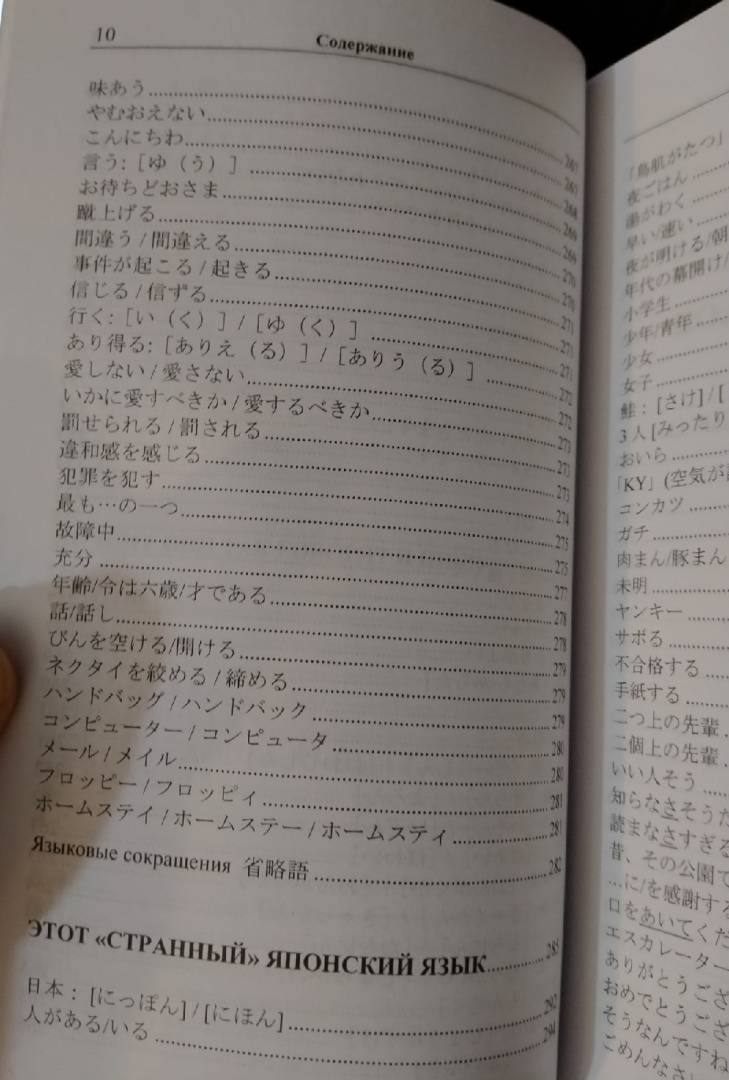 10 Содержание
味あう 267
やむおえない 267
こんにちわ 268
言う: [ゆ（う）] 269
お待ちどおさま 269
蹴上げる 270
間違う / 間違える 270
事件が起こる / 起きる 271
信じる / 信ずる 271
行く: [い（く）] / [ゆ（く）] 271
あり得る: [ありえ（る）] / [ありう（る）] 272
愛しない / 愛さない 272
いかに愛すべきか / 愛するべきか 273
罰せられる / 罰される 273
違和感を感じる 273
犯罪を犯す 274
最も…の一つ 275
故障中 275
充分 277
年齢/令は六歳/才である 278
話/話し 278
びんを空ける/開ける 279
ネクタイを絞める / 締める 279
ハンドバッグ / ハンドバック 279
コンピューター / コンピュータ 280
メール / メイル 280
フロッピー / フロッピィ 281
ホームステイ / ホームステー / ホームスティ 281
Языковые сокращения 省略語 282
ЭТОТ «СТРАННЫЙ» ЯПОНСКИЙ ЯЗЫК 285
日本： [にっぽん] / [にほん] 292
人がある/いる 294
「鳥肌がたつ」
夜ごはん
歯がわく
早い/速い
夜が明ける/朝
年代の幕開け/
小学生
少年/青年
少女
女子
鮭： [さけ] / [
3人 [みったり
おいら
「KY」(空気が
コンカツ
ガチ
肉まん/豚まん
未明
ヤンキー
サボる
不合格する
手紙する
二つ上の先輩
二個上の先輩
いい人そう
知らなさそうだ
読まなさすぎる
昔、その公園で
…に/を感謝する
口をあいてくだ
エスカレーター
ありがとうござ
おめでとうござ
そうなんですね
ごめんなさい